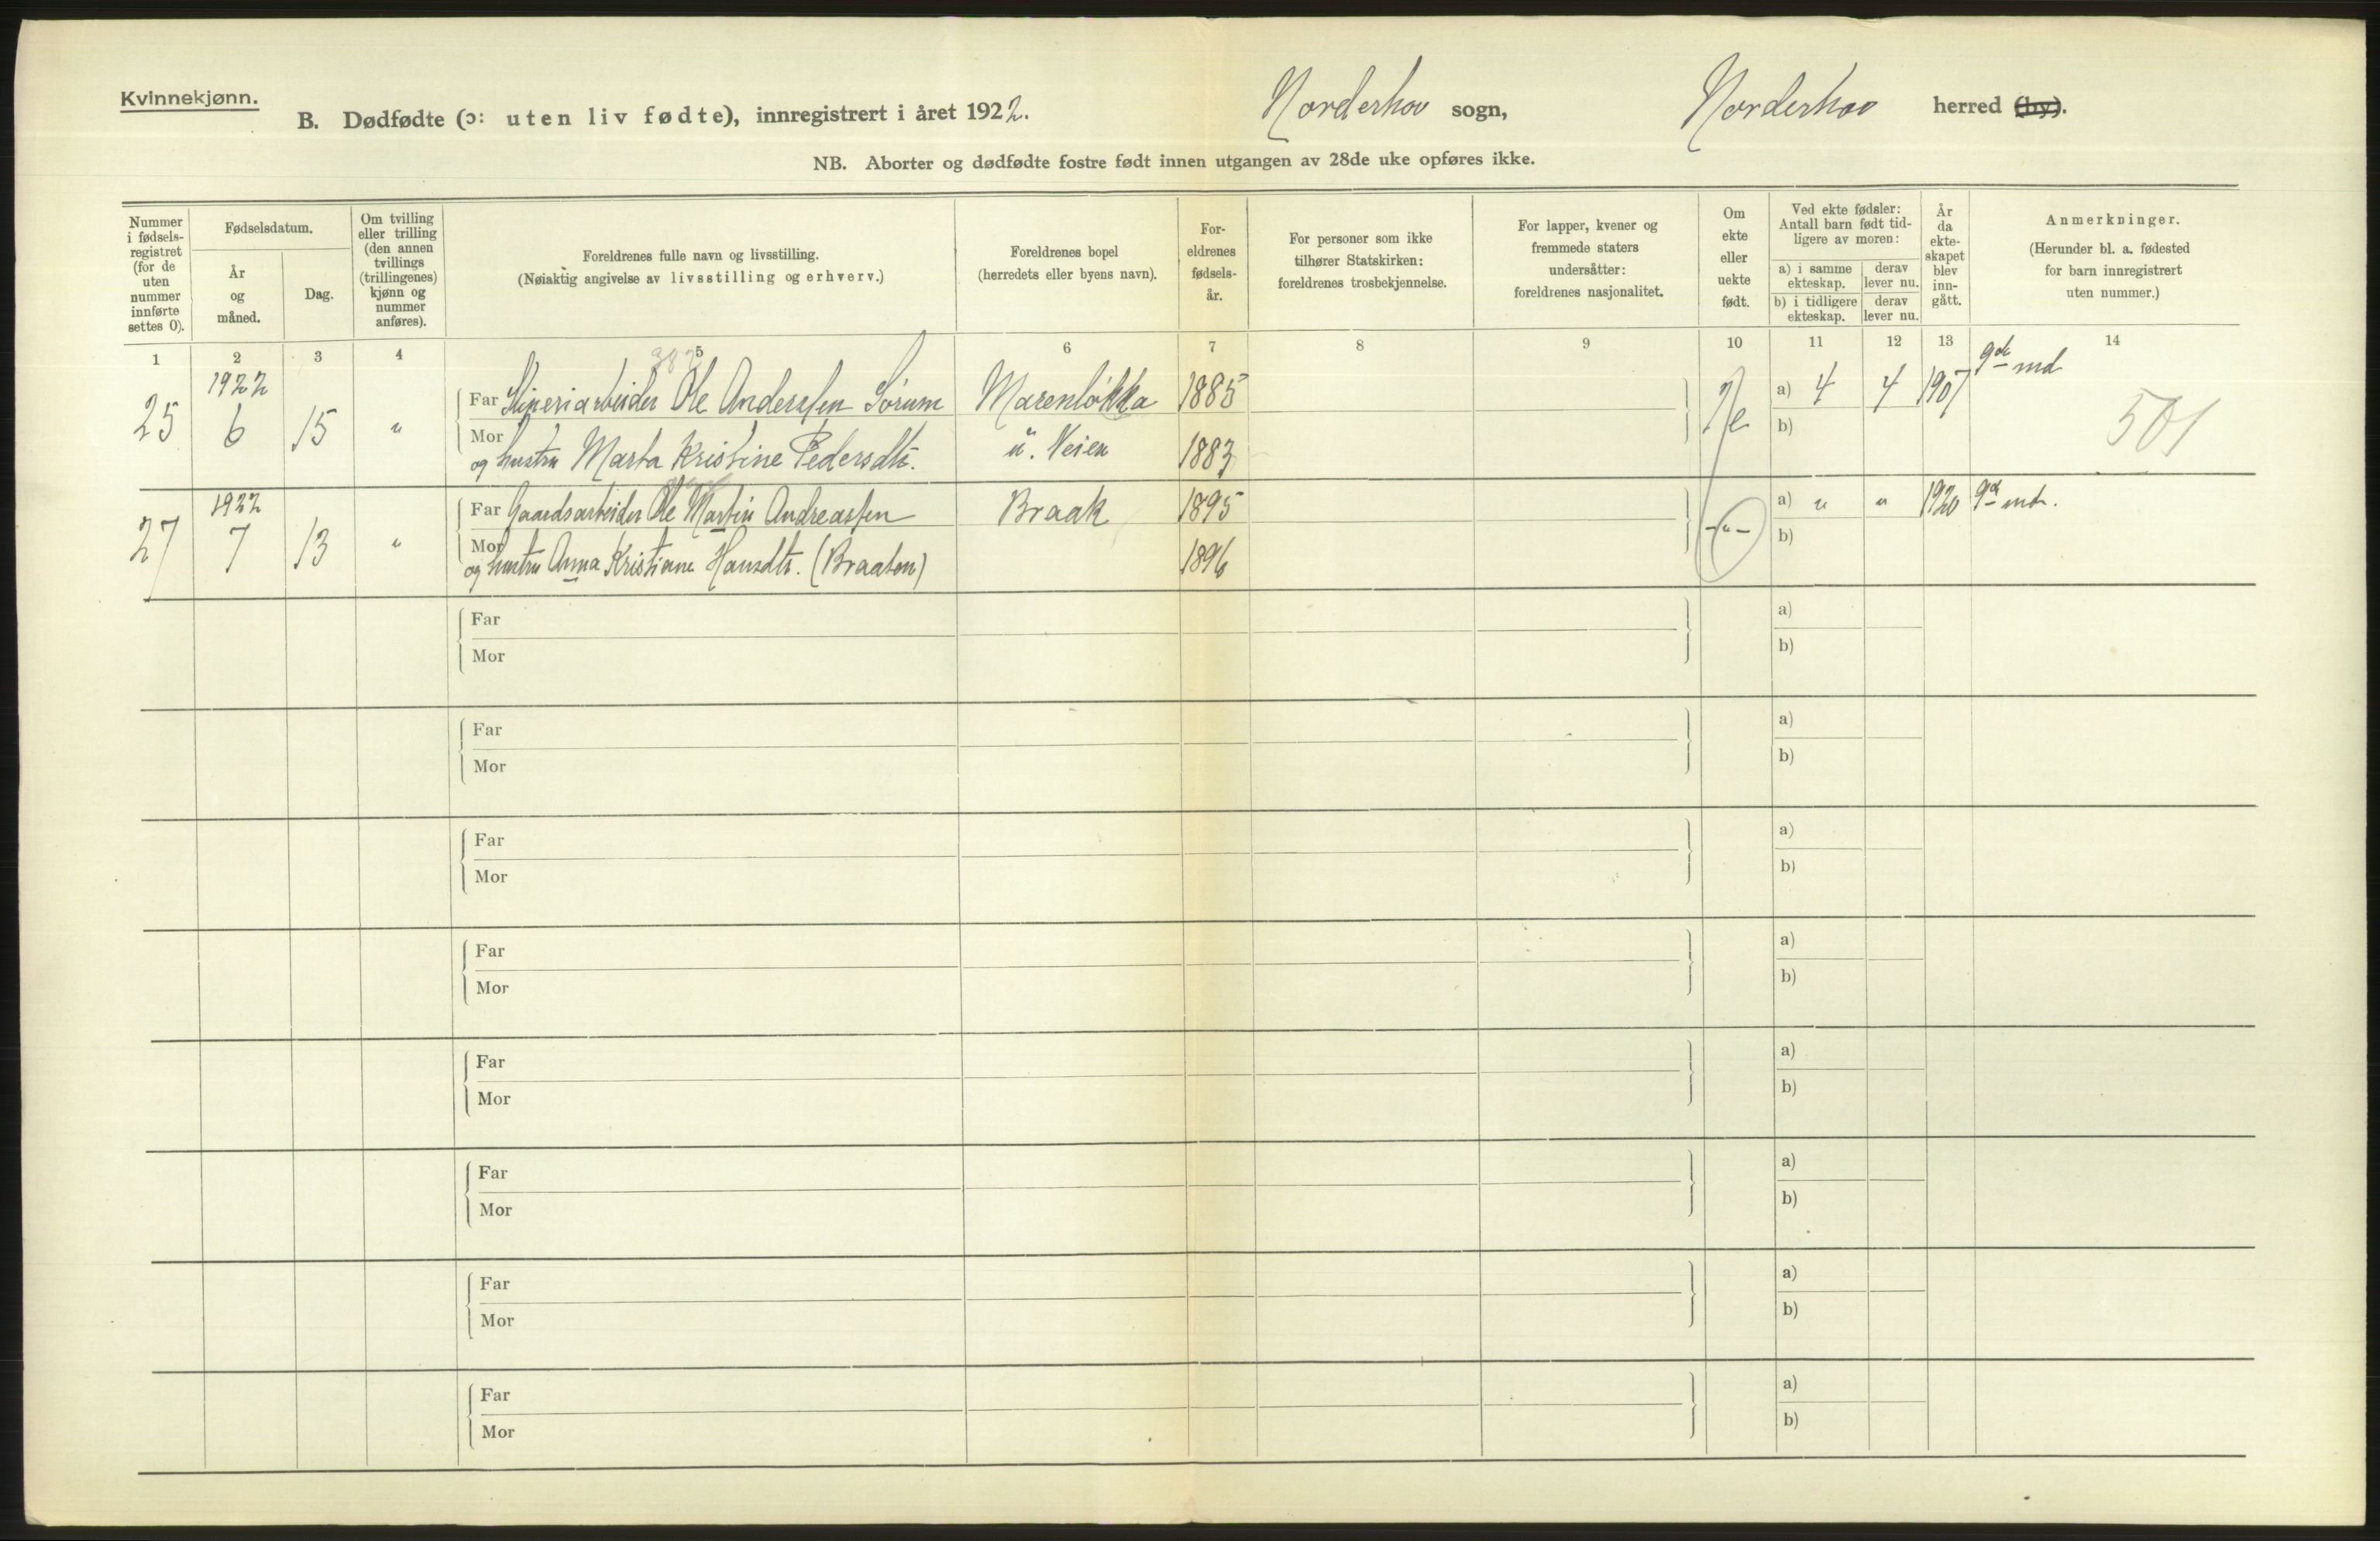 Kvinnekjønn.
B. Dødfødte (ɔ: uten liv fødte), innregistrert i året 1922. Norderhov sogn, Norderhov herred (by).
NB. Aborter og dødfødte fostre født innen utgangen av 28de uke opføres ikke.
Nummer
i fødsels-
registret
(for de
uten
nummer
innførte
settes 0).
Fødselsdatum.
År
og
måned.
Dag.
Om tvilling
eller trilling
(den annen
tvillings
(trillingenes)
kjønn og
nummer
anføres).
Foreldrenes fulle navn og livsstilling.
(Nøiaktig angivelse av livsstilling og erhverv.)
Foreldrenes bopel
(herredets eller byens navn).
For-
eldrenes
fødsels-
år.
For personer som ikke
tilhører Statskirken:
foreldrenes trosbekjennelse.
For lapper, kvener og
fremmede staters
undersåtter:
foreldrenes nasjonalitet.
Om
ekte
eller
uekte
født.
Ved ekte fødsler:
Antall barn født tid-
ligere av moren:
a) i samme
ekteskap.
derav
lever nu.
b) i tidligere
ekteskap.
derav
lever nu.
År
da
ekte-
skapet
blev
inn-
gått.
Anmerkninger.
(Herunder bl. a. fødested
for barn innregistrert
uten nummer.)
1 2 3 4 5 6 7 8 9 10 11 12 13 14
25 1922 6 15 " Far Sliperiarbeider Ole Anderssen Sørum Marenløkka 1885 e a) 4 4 1907 9de md
Mor og hustru Marta Kristine Pedersdtr. u. Veien 1883 b) 501
27 1922 7 13 " Far Gaardsarbeider Ole Martin Andreassen Braak 1895 -"- a) " " 1920 9de md.
Mor og hustru Anna Kristiane Hansdtr. (Braaten) 1896 b)
Far a)
Mor b)
Far a)
Mor b)
Far a)
Mor b)
Far a)
Mor b)
Far a)
Mor b)
Far a)
Mor b)
Far a)
Mor b)
Far a)
Mor b)